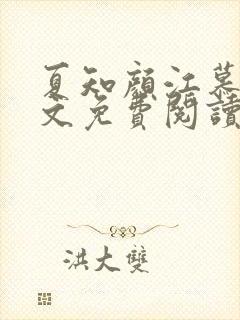 夏知顏江慕
文免費閱讀
洪大雙